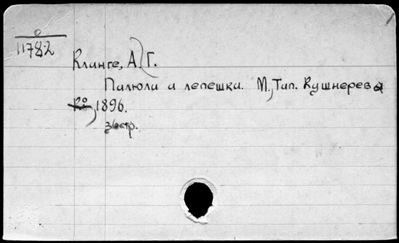 11782
Клинге, А. Г.
Пилюли и лепешки. М. Тип. Кушнерева
1896.
стр.